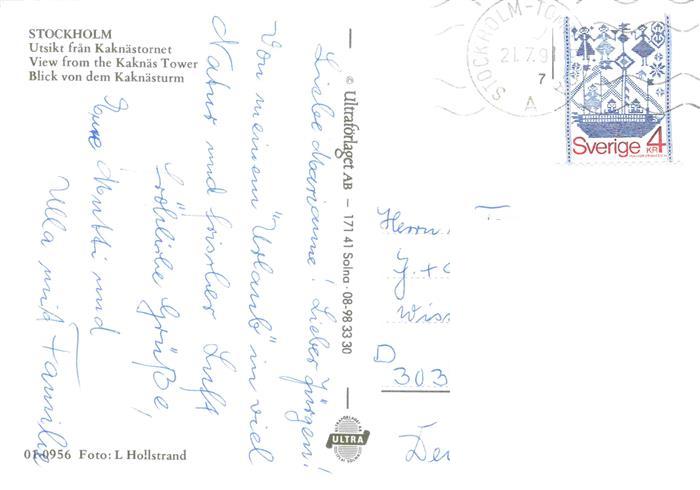 STOCKHOLM
Utsikt från Kaknästornet
View from the Kaknäs Tower
Blick von dem Kaknästurm
Liebe Marianne! Lieber Jürgen!
Von meinem Urlaub in viel
Natur und frischer Luft
fröhliche Grüße,
Eure Mutti und
Ulla mit Familie
© Ultraförlaget AB — 171 41 Solna · 08-98 33 30
ULTRA
STOCKHOLM-TO
21.7.9
7
A
Sverige 4
KR
Herrn
J. +
Wiss
D
303
01-0956 Foto: L Hollstrand